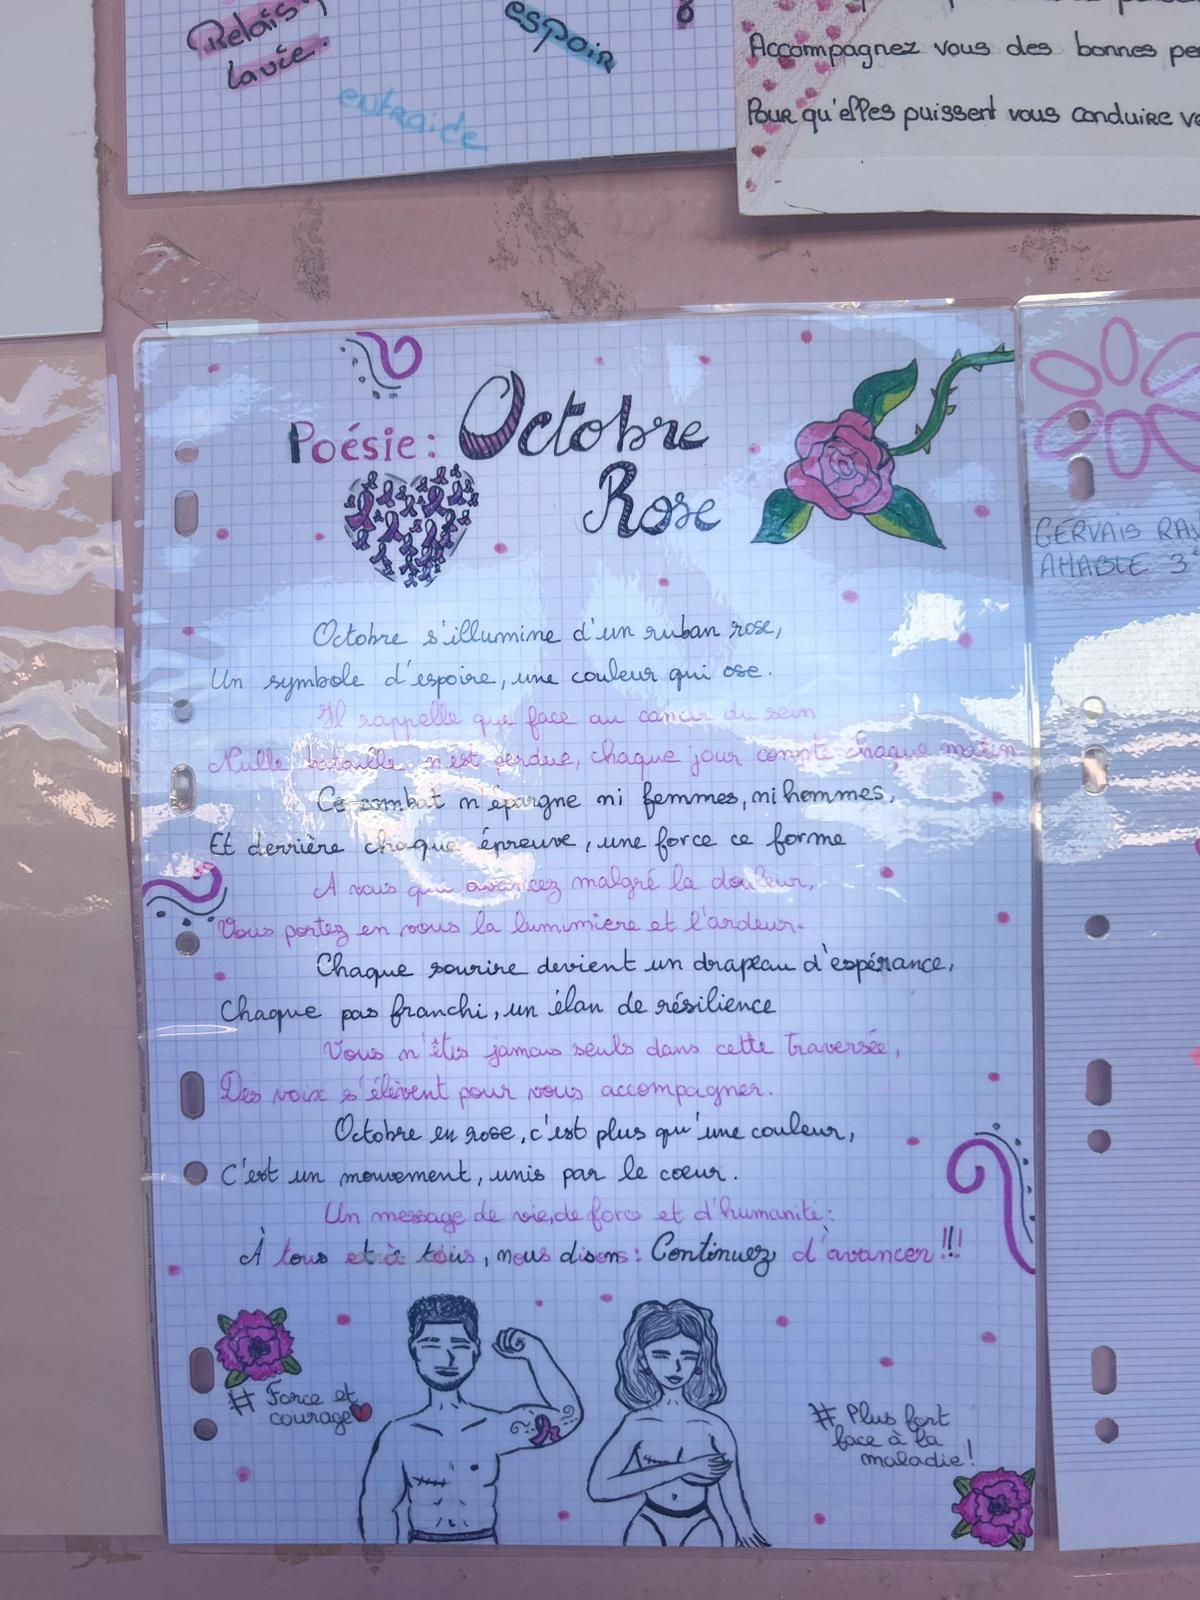 Relais
la vie.
espoir
entraide
Accompagnez vous des bonnes
Pour qu'elles puissent vous conduire
Poésie : Octobre
Rose
GERVAIS
AMABLE 3
Octobre s'illumine d'un ruban rose,
Un symbole d'espoire, une couleur qui ose.
Il rappelle que face au cancer du sein
Nulle bataille n'est perdue, chaque jour compte chaque matin
Ce combat n'épargne ni femmes, ni hommes,
Et derrière chaque épreuve, une force ce forme
A vous qui avancez malgré la douleur,
Vous portez en vous la lumimiere et l'ardeur.
Chaque sourire devient un drapeau d'espérance,
Chaque pas franchi, un élan de résilience
Vous n'êtes jamais seuls dans cette traversée,
Des voix s'élèvent pour vous accompagner.
Octobre en rose, c'est plus qu'une couleur,
C'est un mouvement, unis par le cœur.
Un message de vie, de force et d'humanité:
À tous et à tous, nous disons : Continuez d'avancer !!!
# Force et
courage
# Plus fort
face à la
maladie !